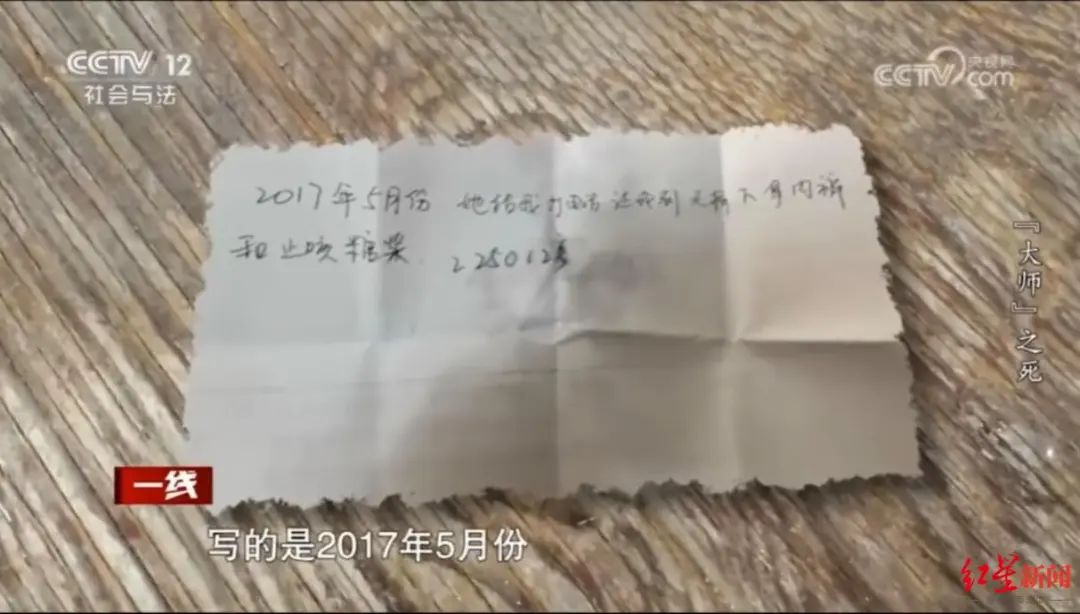 CCTV 12
社会与法
央视网
CCTV.com
2017年5月份 她给我打电话让我到无
下身内裤
和止咳糖浆. 225012
『大师』之死
一线
写的是2017年5月份
红星新闻